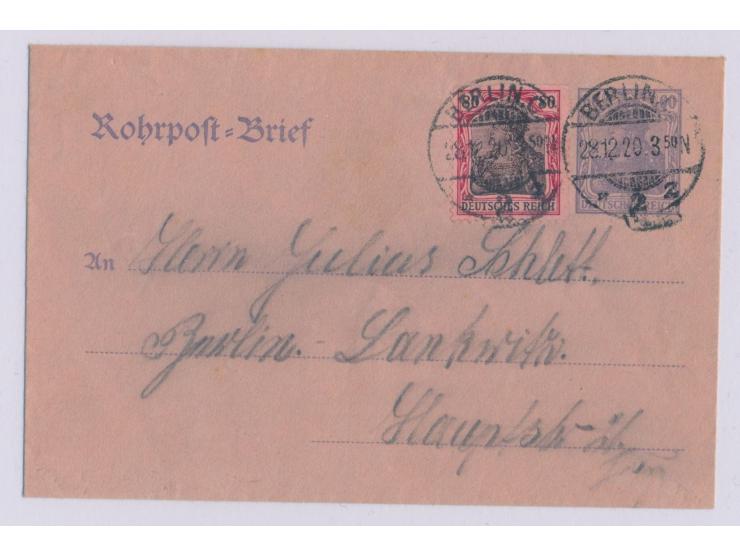 Rohrpost=Brief
80 80
DEUTSCHES REICH
BERLIN
28.12.20. 3 50 N
BERLIN
28.12.20. 3 50 N
* 2 2
DEUTSCHES REICH
An Herrn Julius Schlett,
Berlin-Lankwitz.
Hauptstr.